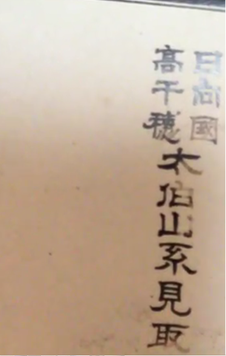 日向國
高千穗
太伯山系見取